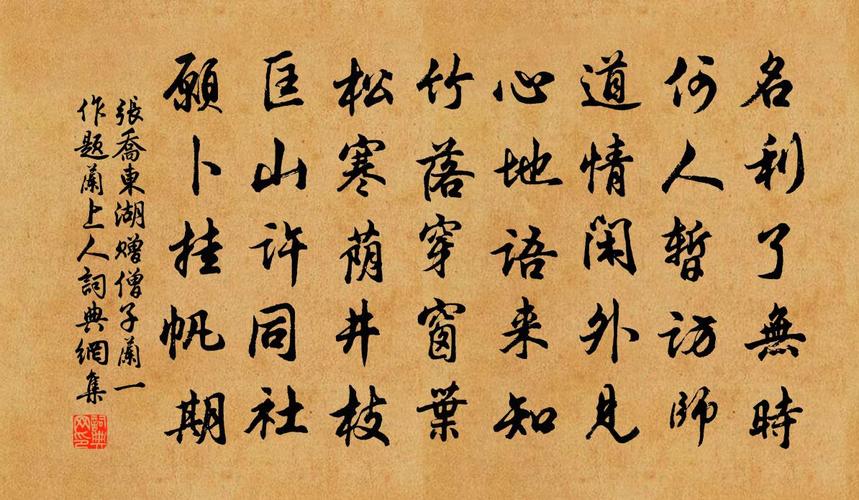 名利了無時
何人暫访師
道情闲外見
心地語来知
竹落穿窗葉
松寒荫井枝
匡山许同社
願卜挂帆期
張喬東湖赠僧子蘭一
作題蘭上人詞典網集